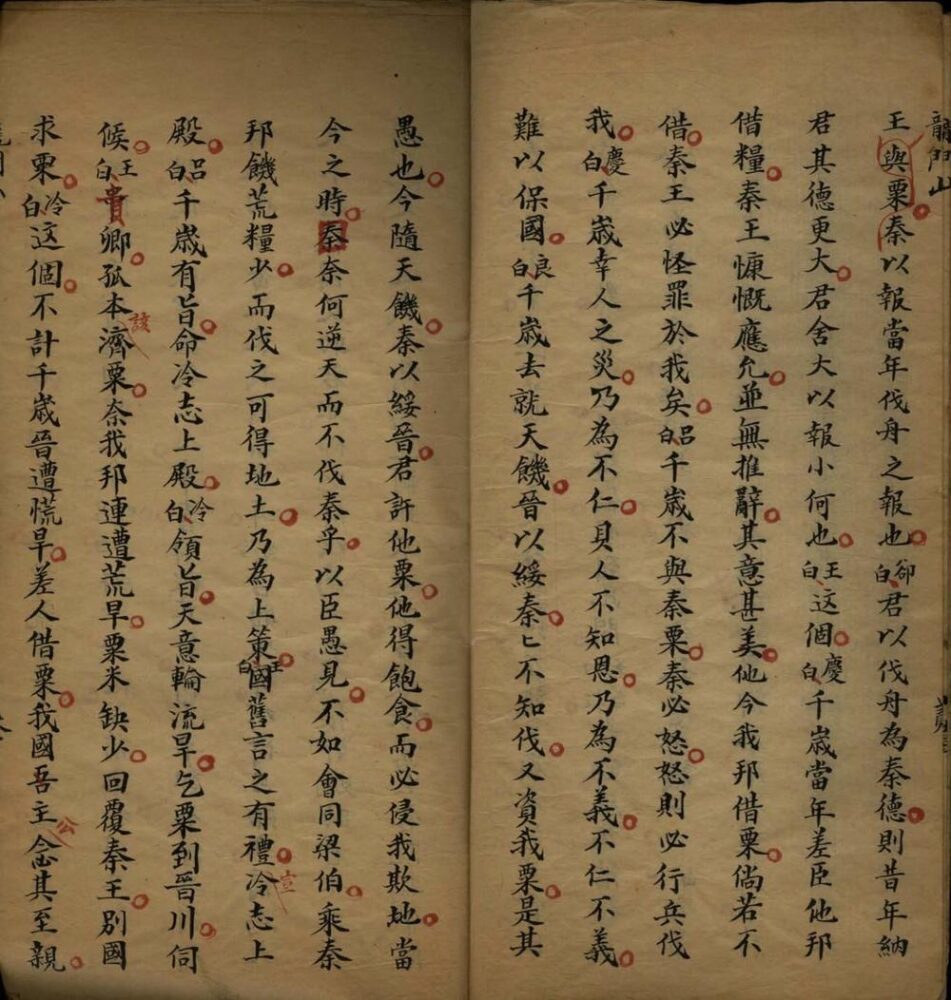 龍門山
王與粟秦以報當年伐舟之報也郤白君以伐舟為秦德則昔年納
君其德更大君舍大以報小何也王白这個慶白千歲當年差臣他邦
借糧秦王慷慨應允並無推辭其意甚美他今我邦借粟倘若不
借秦王必怪罪於我矣呂白千歲不與秦粟秦必怒怒則必行兵伐
我慶白千歲幸人之災乃為不仁貝人不知恩乃為不義不仁不義
難以保國良白千歲去就天饑晉以綏秦匕不知伐又資我粟是其
愚也今隨天饑秦以綏晉君許他粟他得飽食而必侵我欺地當
今之時秦奈何逆天而不伐秦乎以臣愚見不如會同梁伯乘秦
邦饑荒糧少而伐之可得地土乃為上策王白國舊言之有禮宣冷志上
殿呂白千歲有旨命冷志上殿冷白領旨天意輪流旱乞粟到晉川伺
候王白貴卿孤本該濟粟奈我邦連遭荒旱粟米缺少回覆秦王別國
求粟冷白这個不計千歲晉遭慌旱差人借粟我國吾主公念其至親